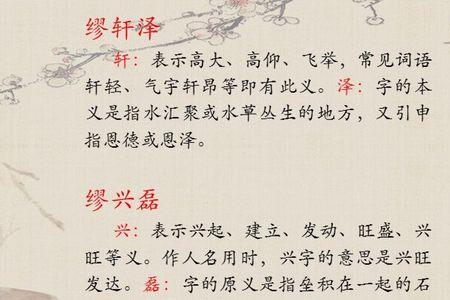 缪轩泽
轩：表示高大、高仰、飞举，常见词语
轩轻、气宇轩昂等即有此义。泽：字的本
义是指水汇聚或水草丛生的地方，又引申
指恩德或恩泽。
缪兴磊
兴：表示兴起、建立、发动、旺盛、兴
旺等义。作人名用时，兴字的意思是兴旺
发达。磊：字的原义是指垒积在一起的石